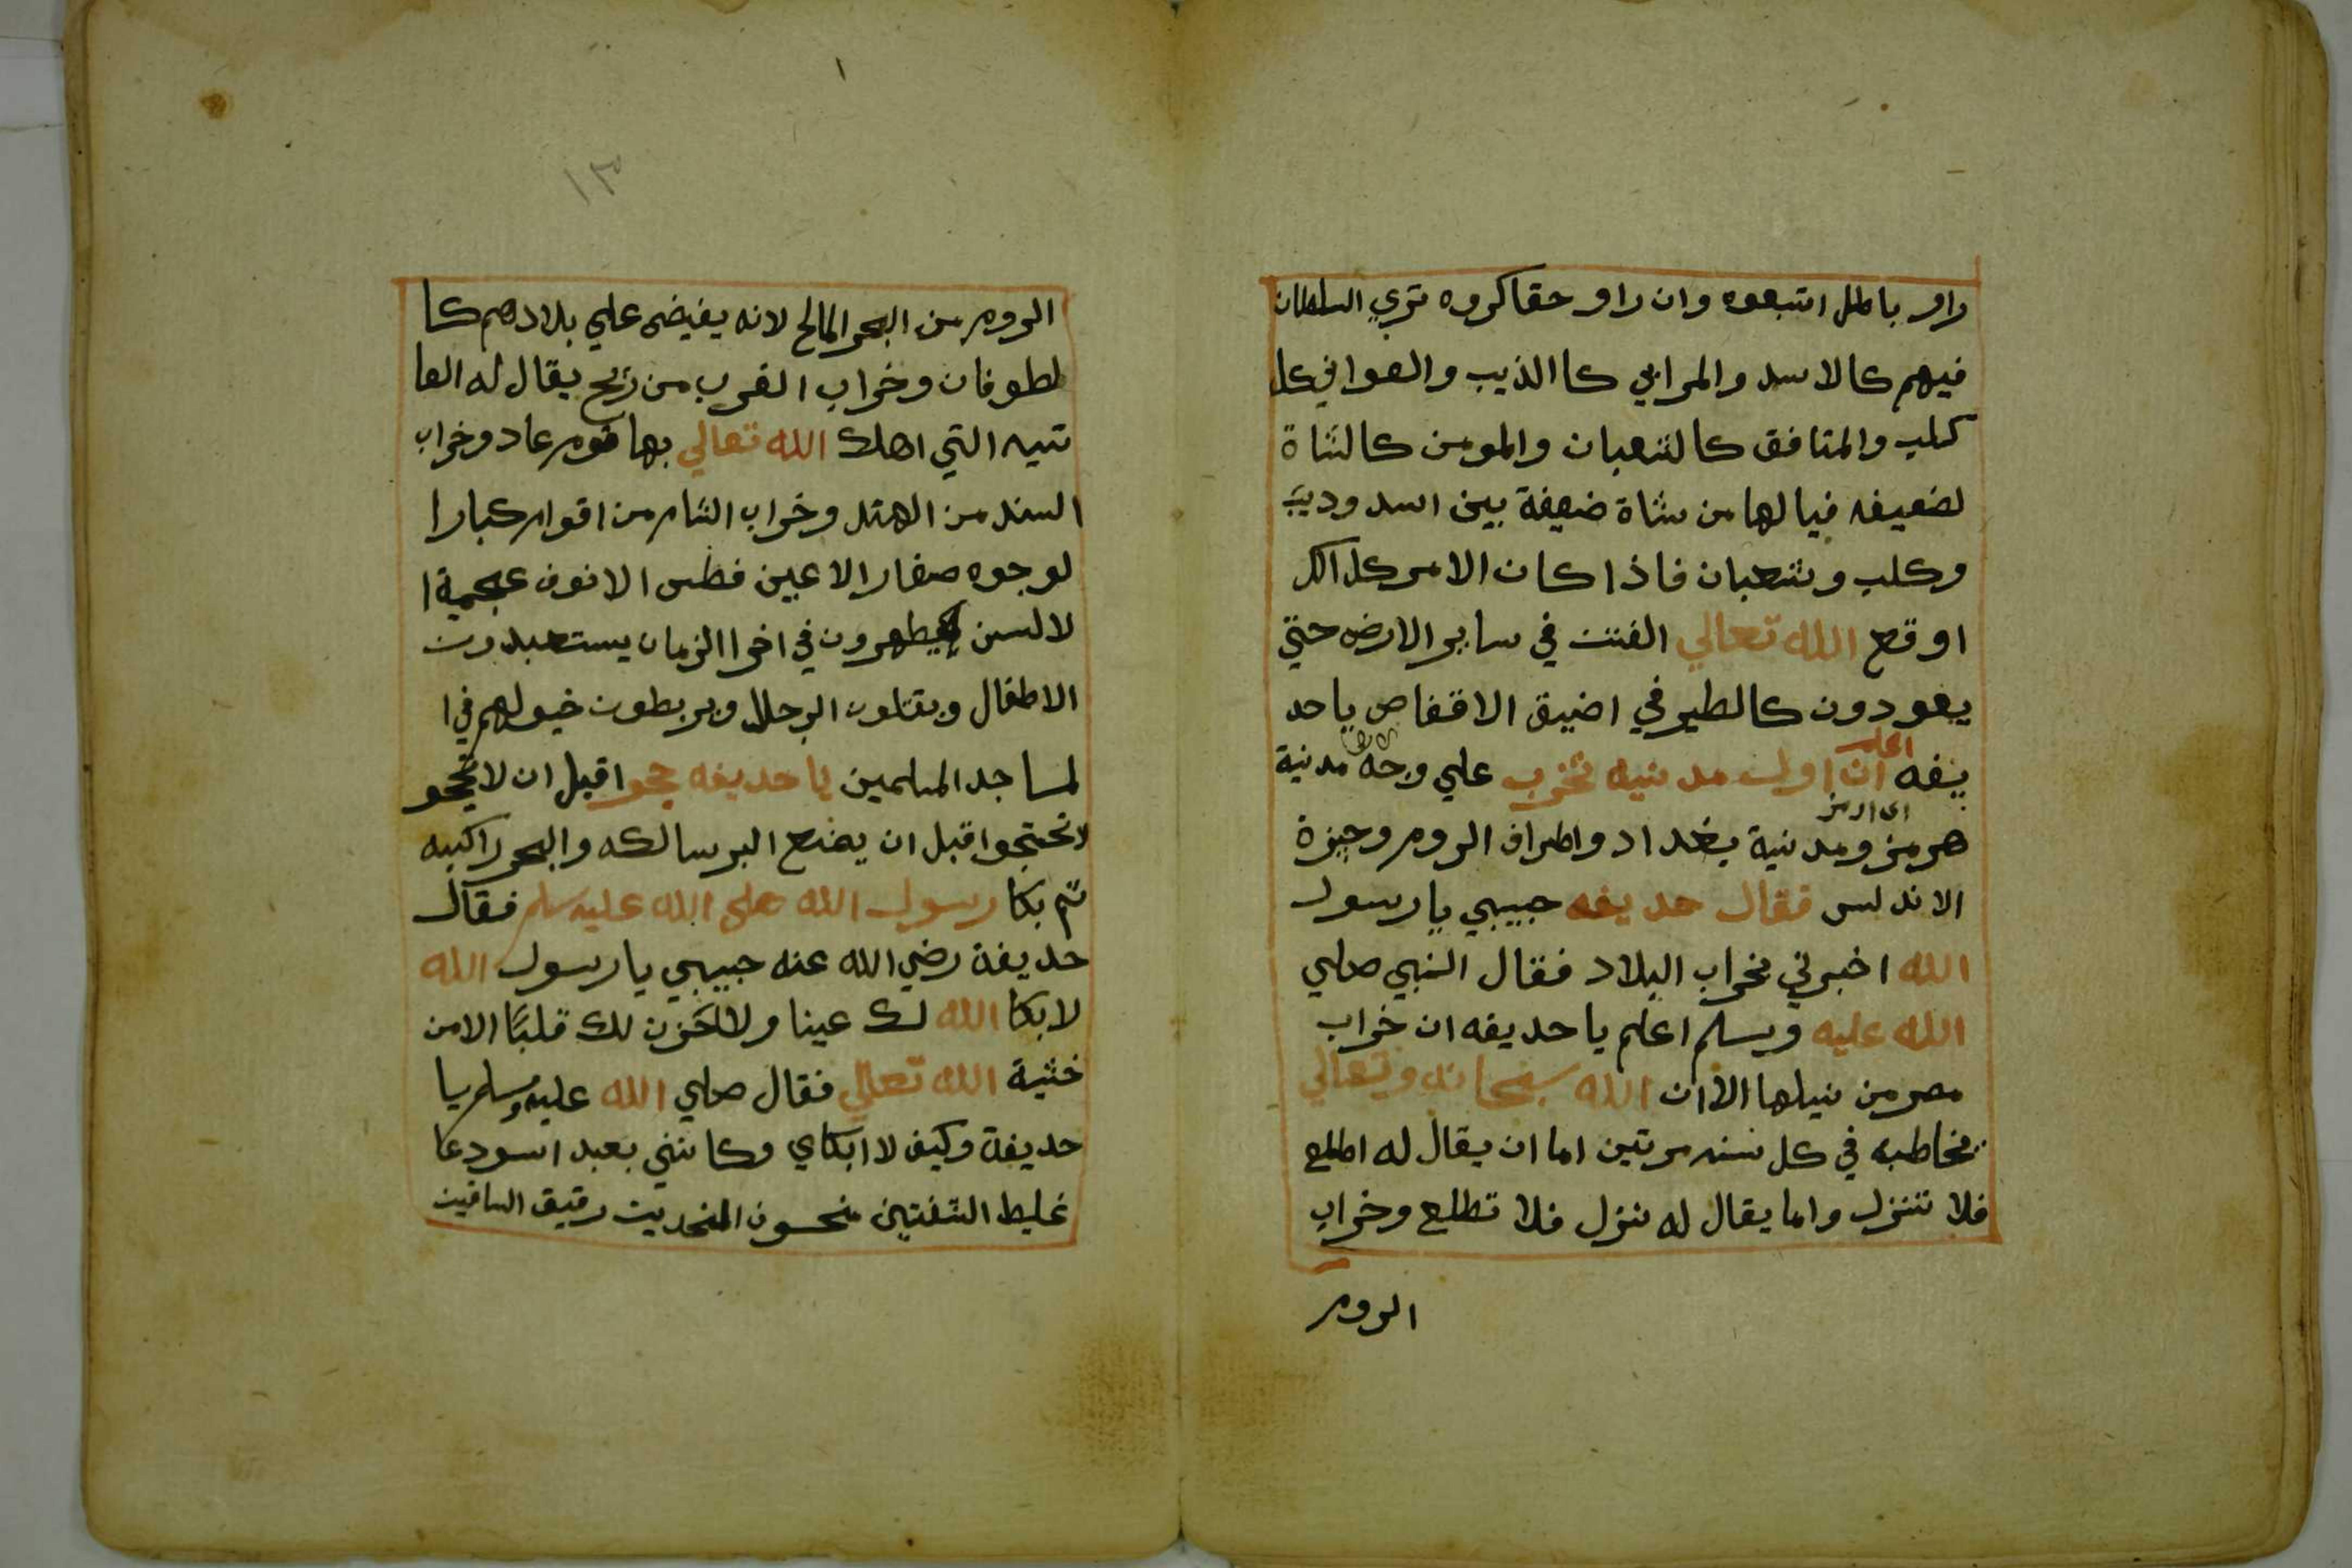 راو باطل اتبعوه وان راو حقا كروه تري السلطان
فيهم كالاسد والمرابي كا الذيب والعواني كل
كلب والمنافق كالثعبان والمومن كالشاة
لضعيفه فيالها من شاة ضعيفة بين اسد وديب
وكلب وثعبان فاذا كان الامر كل الك
اوقع الله تعالي الفتن في ساير الارض حتي
يعودون كالطير في اضيق الاقفاص ياحد
يفه اعلم ان اول مدنيه تخرب علي وجه مدنية
هرمز ومدنية بغداد واطراف الروم وجيزة
الاندلس فقال حديفه حبيبي يا رسول
الله اخبرني بخراب البلاد فقال النبي صلي
الله عليه وسلم اعلم يا حديفه ان خراب
مصر من نيلها الاان الله سبحانه وتعالي
يخاطبه في كل سنه مرتين اما ان يقال له اطلع
فلا تنزل واما يقال له نزل فلا تطلع وخراب
الروم
١٣
الروم من البحر المالح لانه يفيض علي بلادهم كا
لطوفان وخراب الغرب من ريح يقال له العا
تيه التي اهلك الله تعالي بها قوم عاد وخراب
السند من الهند وخراب الشام من اقوام كبار ا
لوجوه صغار الاعين فطس الانوف عجمية ا
لالسن يظهرون في اخر الزمان يستعبدون
الاطفال ويقتلون الرجال ويربطون خيولهم في ا
لمساجد المسلمين يا حديفه حجوا قبل ان لا تحجو
لا تحتجوا قبل ان يمنع البر سالكه والبحر راكبه
ثم بكا رسول الله صلي الله عليه سلم فقال
حديفة رضي الله عنه حبيبي يا رسول الله
لا بكا الله لك عينا ولا لحزن لك قلبًا الا من
خشية الله تعالي فقال صلي الله عليه وسلم يا
حديفة وكيف لا ابكاي وكانني بعبد اسود عا
غليط الشفتين منحسون المنخرين رقيق الساقين